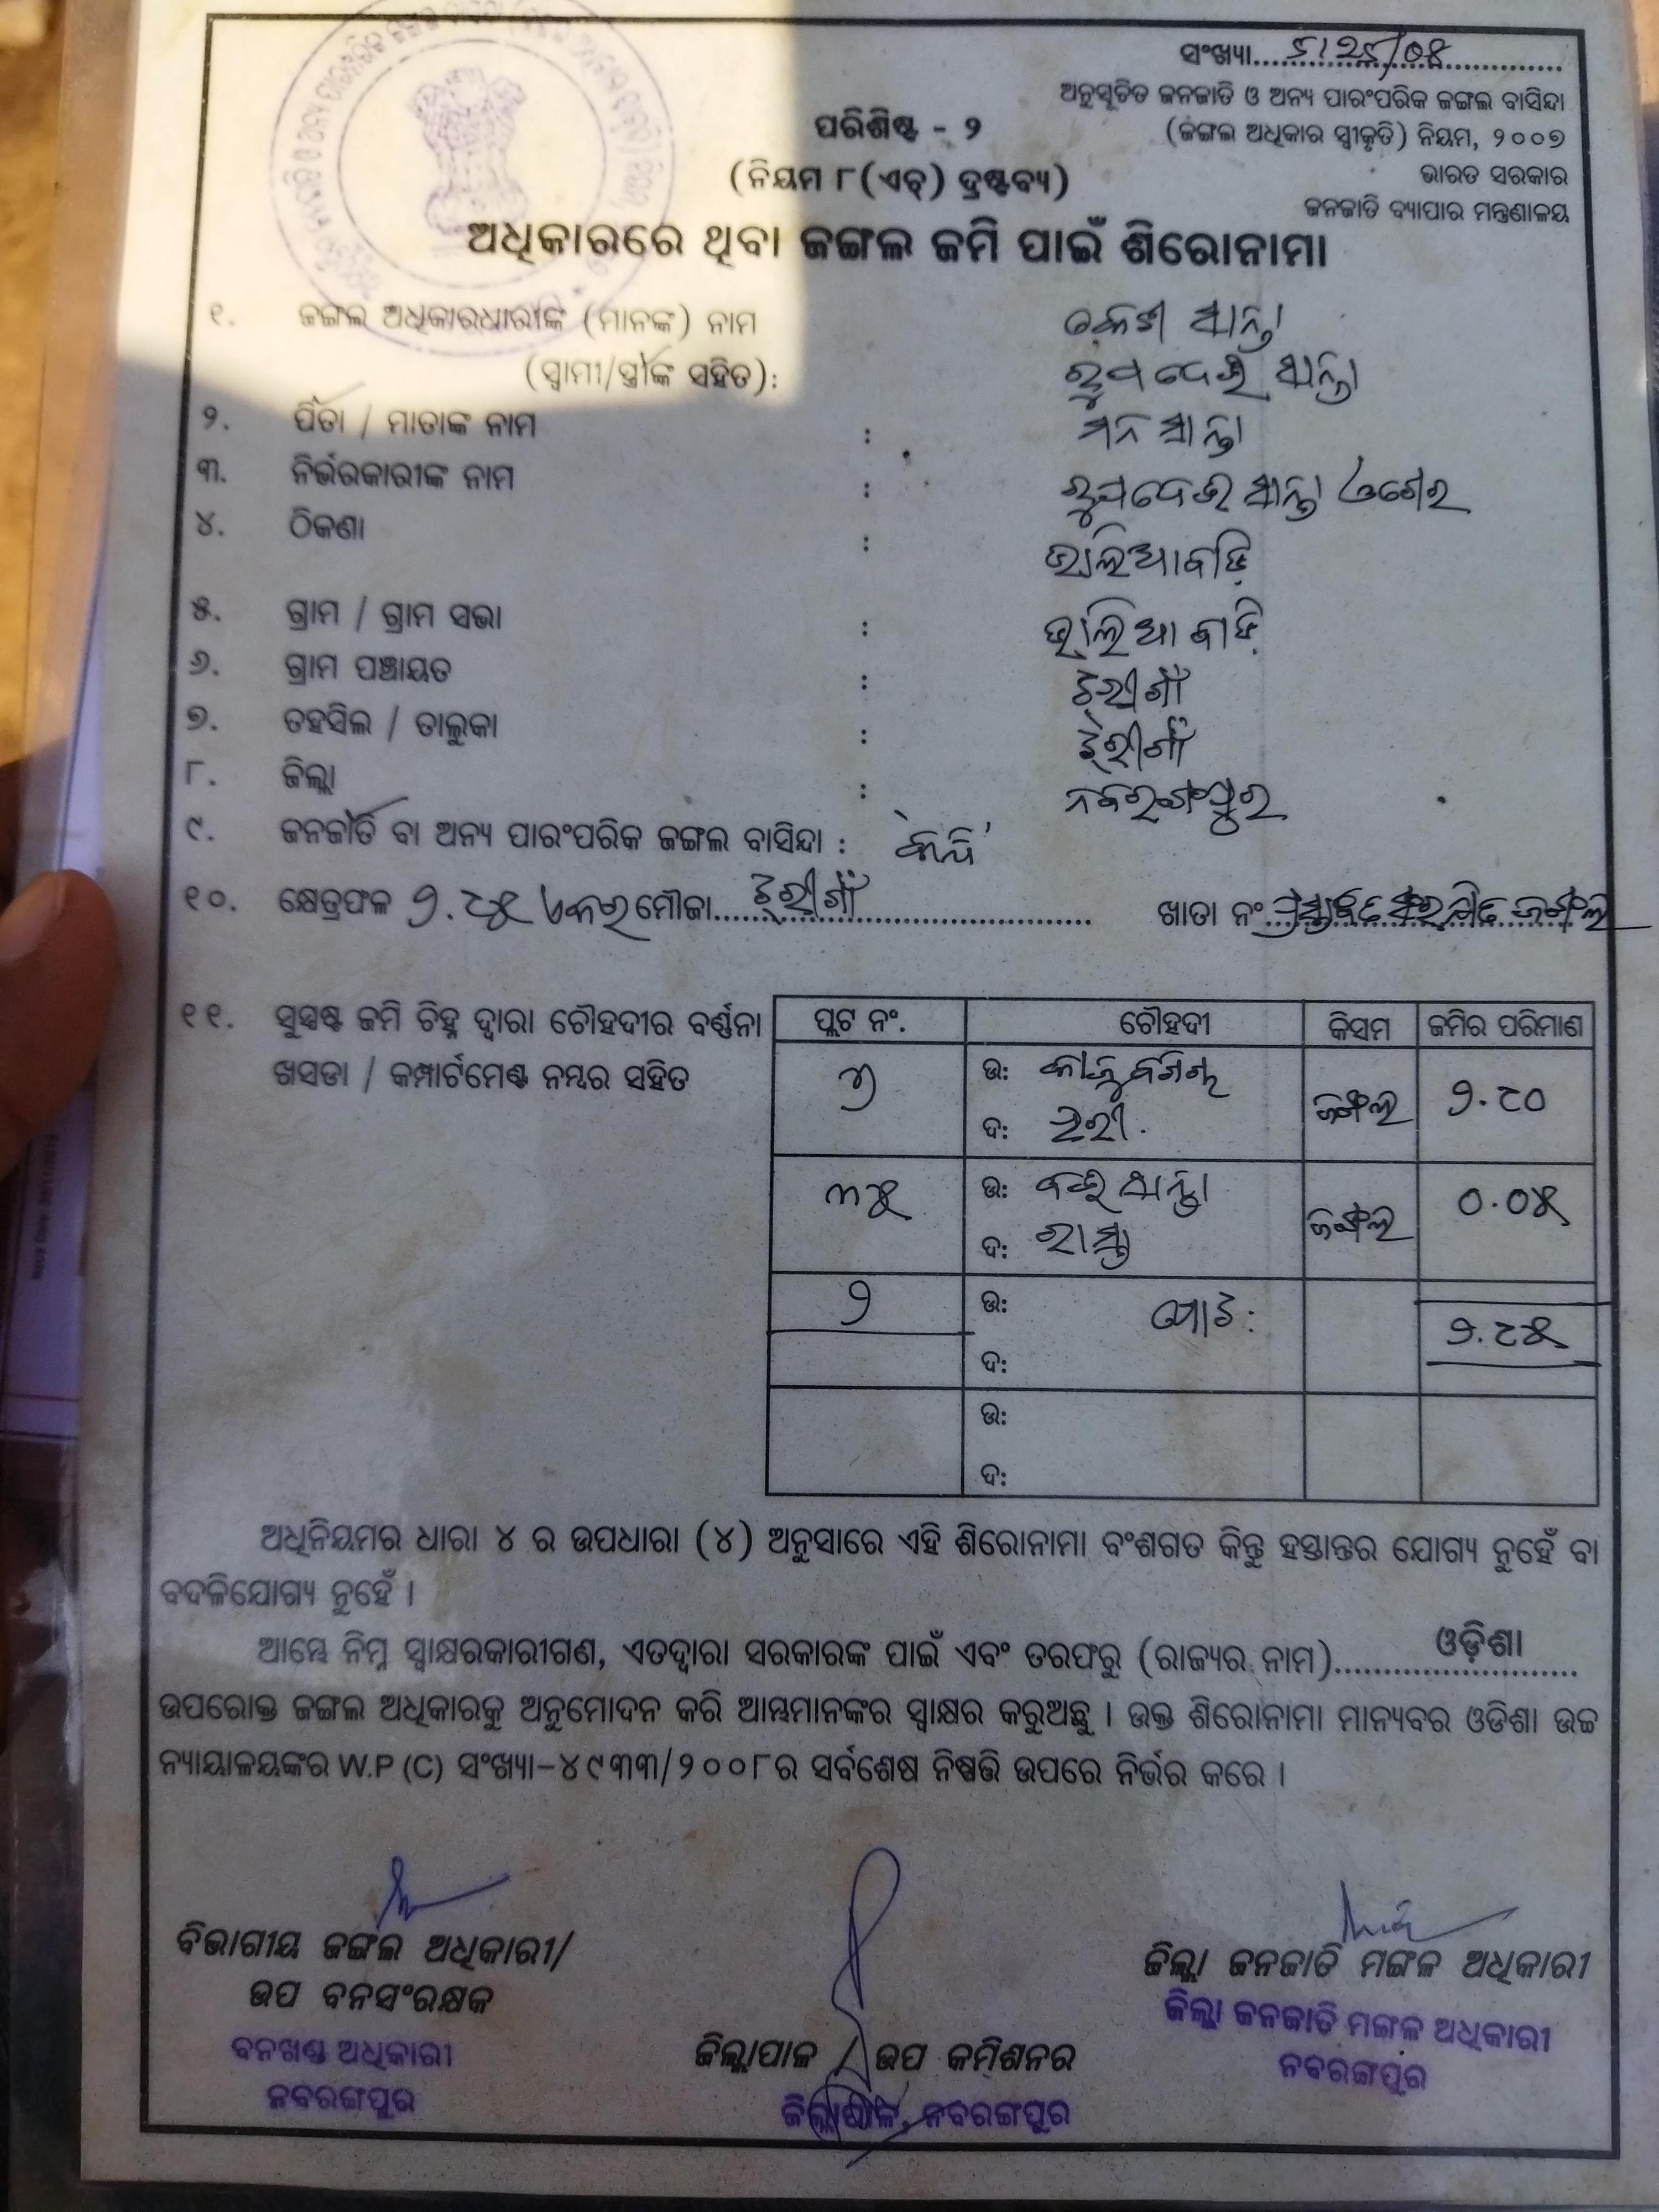 ସଂଖ୍ୟା
ଅନୁସୂଚିତ ଜନଜାତି ଓ ଅନ୍ୟ ପାରଂପରିକ ଜଙ୍ଗଲ ବାସିନ୍ଦା
ପରିଶିଷ୍ଟ - ୨
(ଜଙ୍ଗଲ ଅଧିକାର ସ୍ୱୀକୃତି) ନିୟମ, ୨୦୦୭
(ନିୟମ ୮(ଏଚ୍) ଦ୍ରଷ୍ଟବ୍ୟ)
ଭାରତ ସରକାର
ଜନଜାତି ବ୍ୟାପାର ମନ୍ତ୍ରଣାଳୟ
ଅଧିକାରରେ ଥିବା ଜଙ୍ଗଲ ଜମି ପାଇଁ ଶିରୋନାମା
୧. ଜଙ୍ଗଲ ଅଧିକାରଧାରୀଙ୍କ (ମାନଙ୍କ) ନାମ ସାନ୍ତା
(ସ୍ୱାମୀ/ସ୍ତ୍ରୀଙ୍କ ସହିତ): ରୁପଦେଈ ସାନ୍ତା
୨. ପିତା / ମାତାଙ୍କ ନାମ : ମନ ସାନ୍ତା
୩. ନିର୍ଭରକାରୀଙ୍କ ନାମ : ରୁପଦେଈ ସାନ୍ତା
୪. ଠିକଣା : ଭାଲିଆବାଡ଼ି
୫. ଗ୍ରାମ / ଗ୍ରାମ ସଭା : ଭାଲିଆବାଡ଼ି
୬. ଗ୍ରାମ ପଞ୍ଚାୟତ : ଝରୀଗାଁ
୭. ତହସିଲ / ତାଲୁକା : ଝରୀଗାଁ
୮. ଜିଲ୍ଲା : ନବରଂଗପୁର
୯. ଜନଜାତି ବା ଅନ୍ୟ ପାରଂପରିକ ଜଙ୍ଗଲ ବାସିନ୍ଦା :
୧୦. କ୍ଷେତ୍ରଫଳ ୨.୯୫ ଏକର ମୌଜା ଝରୀଗାଁ ଖାତା ନଂ ପ୍ରସ୍ତାବିତ ସଂରକ୍ଷିତ ଜଙ୍ଗଲ
୧୧. ସୁସ୍ପଷ୍ଟ ଜମି ଚିହ୍ନ ଦ୍ୱାରା ଚୌହଦୀର ବର୍ଣ୍ଣନା
ଖସଡା / କମ୍ପାର୍ଟମେଣ୍ଟ ନମ୍ବର ସହିତ
ପ୍ଲଟ ନଂ. ଚୌହଦୀ କିସମ ଜମିର ପରିମାଣ
ଉ:
ଦ: ଝରୀ. ଜଙ୍ଗଲ ୨.୯୦
୩୫ ଉ: ସାନ୍ତା
ଦ: ରାସ୍ତା ଜଙ୍ଗଲ ୦.୦୫
୨ ଉ: ମୋଟ: ୨.୯୫
ଦ:
ଉ:
ଦ:
ଅଧିନିୟମର ଧାରା ୪ ର ଉପଧାରା (୪) ଅନୁସାରେ ଏହି ଶିରୋନାମା ବଂଶଗତ କିନ୍ତୁ ହସ୍ତାନ୍ତର ଯୋଗ୍ୟ ନୁହେଁ ବା
ବଦଳିଯୋଗ୍ୟ ନୁହେଁ ।
ଆମ୍ଭେ ନିମ୍ନ ସ୍ୱାକ୍ଷରକାରୀଗଣ, ଏତଦ୍ୱାରା ସରକାରଙ୍କ ପାଇଁ ଏବଂ ତରଫରୁ (ରାଜ୍ୟର ନାମ) ଓଡ଼ିଶା
ଉପରୋକ୍ତ ଜଙ୍ଗଲ ଅଧିକାରକୁ ଅନୁମୋଦନ କରି ଆମ୍ଭମାନଙ୍କର ସ୍ୱାକ୍ଷର କରୁଅଛୁ । ଉକ୍ତ ଶିରୋନାମା ମାନ୍ୟବର ଓଡିଶା ଉଚ୍ଚ
ନ୍ୟାୟାଳୟଙ୍କର W.P (C) ସଂଖ୍ୟା-୪୯୩୩/୨୦୦୮ର ସର୍ବଶେଷ ନିଷ୍ପତ୍ତି ଉପରେ ନିର୍ଭର କରେ ।
ବିଭାଗୀୟ ଜଙ୍ଗଲ ଅଧିକାରୀ/
ଉପ ବନସଂରକ୍ଷକ
ବନଖଣ୍ଡ ଅଧିକାରୀ
ନବରଙ୍ଗପୁର
ଜିଲ୍ଲାପାଳ / ଉପ କମିଶନର
ଜିଲ୍ଲାପାଳ, ନବରଙ୍ଗପୁର
ଜିଲ୍ଲା ଜନଜାତି ମଙ୍ଗଳ ଅଧିକାରୀ
ଜିଲ୍ଲା ଜନଜାତି ମଙ୍ଗଳ ଅଧିକାରୀ
ନବରଙ୍ଗପୁର